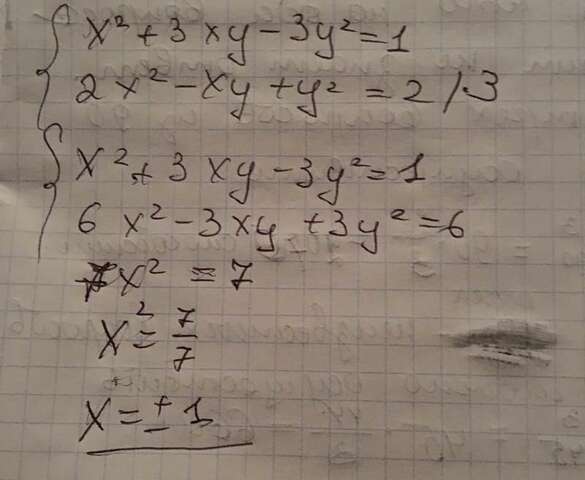 x² + 3xy - 3y² = 1
2x² - xy + y² = 2 / ·3
x² + 3xy - 3y² = 1
6x² - 3xy + 3y² = 6
7x² = 7
x² = 7/7
x = ± 1